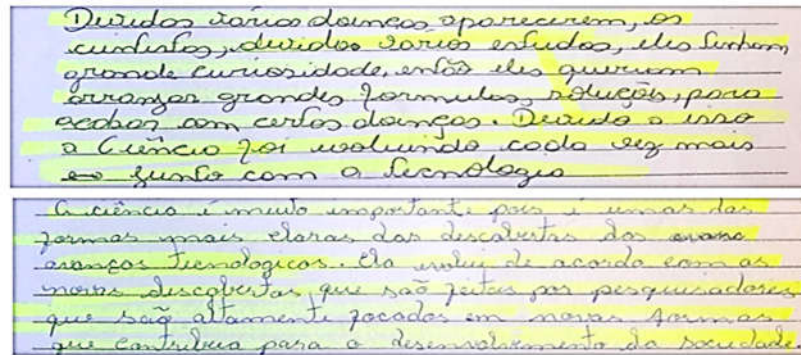 Devidos vários doenças aparecerem, os
cientistas, devidos vários estudos, eles tinham
grande curiosidade, então eles queriam
arranjar grandes formulas, soluções, para
acabar com certas doenças. Devido a isso
a Ciência foi evoluindo cada vez mais
junto com a tecnologia
A ciência é muito importante pois é umas das
formas mais claras das descobertas dos
avanços tecnologicos. Ela evolui de acordo com as
novas descobertas, que são feitas por pesquisadores
que são altamente focados em novas formas
que contribua para o desenvolvimento da sociedade.